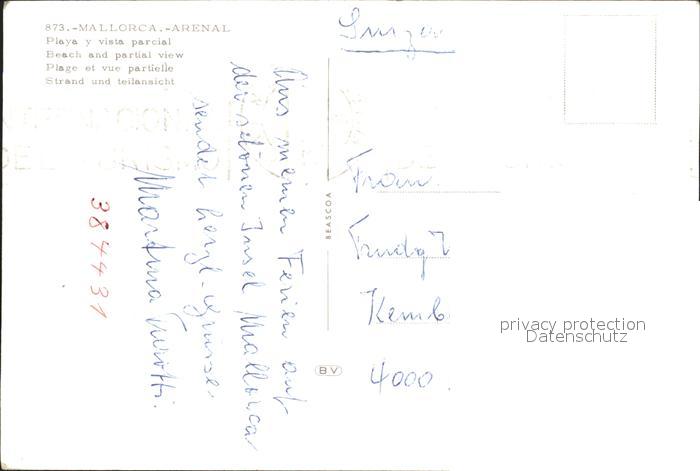 873.-MALLORCA.-ARENAL
Playa y vista parcial
Beach and partial view
Plage et vue partielle
Strand und teilansicht
Aus meinen Ferien auf
der schönen Insel Mallorca
sendet herzl. Grüsse
Martina
384431
BEASCOA
BV
Frau
Trudy
Kemb
4000.
privacy protection
Datenschutz